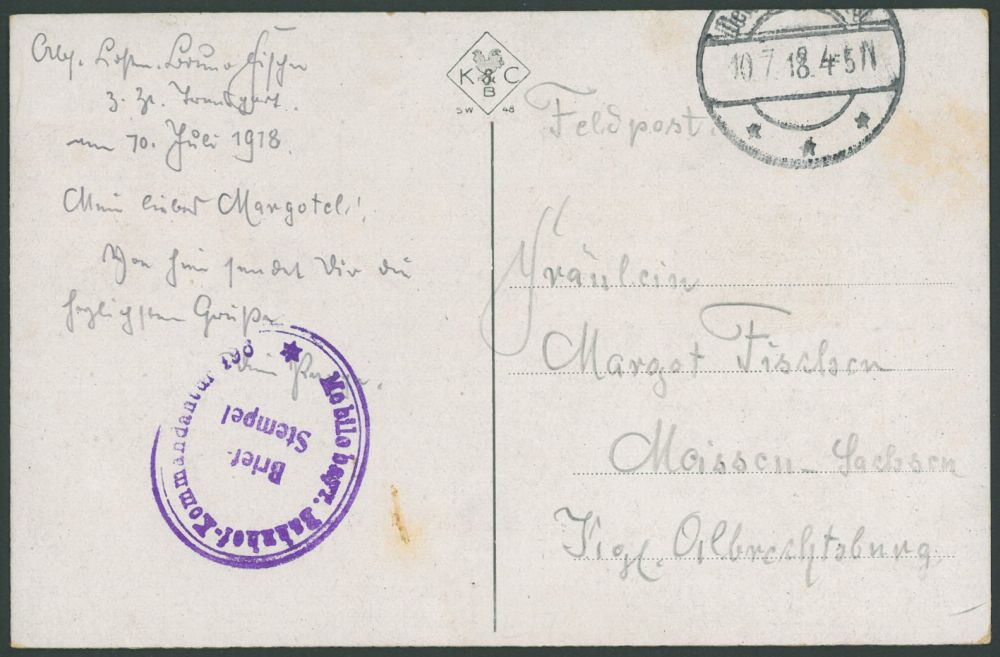 Abs. Lofm. Bruno Fischer
z. Zt. Transport.
am 10. Juli 1918.
Mein liebes Margotel!
Von hier sendet Dir die
herzlichsten Grüße
Dein
Mobile bayr. Bahnhof-Kommandantur 198
Brief-
Stempel
K & C
B
SW 48
10.7.18. 4-5N
Feldpost.
Fräulein
Margot Fischer
Meissen-Sachsen
Kgl. Albrechtsburg